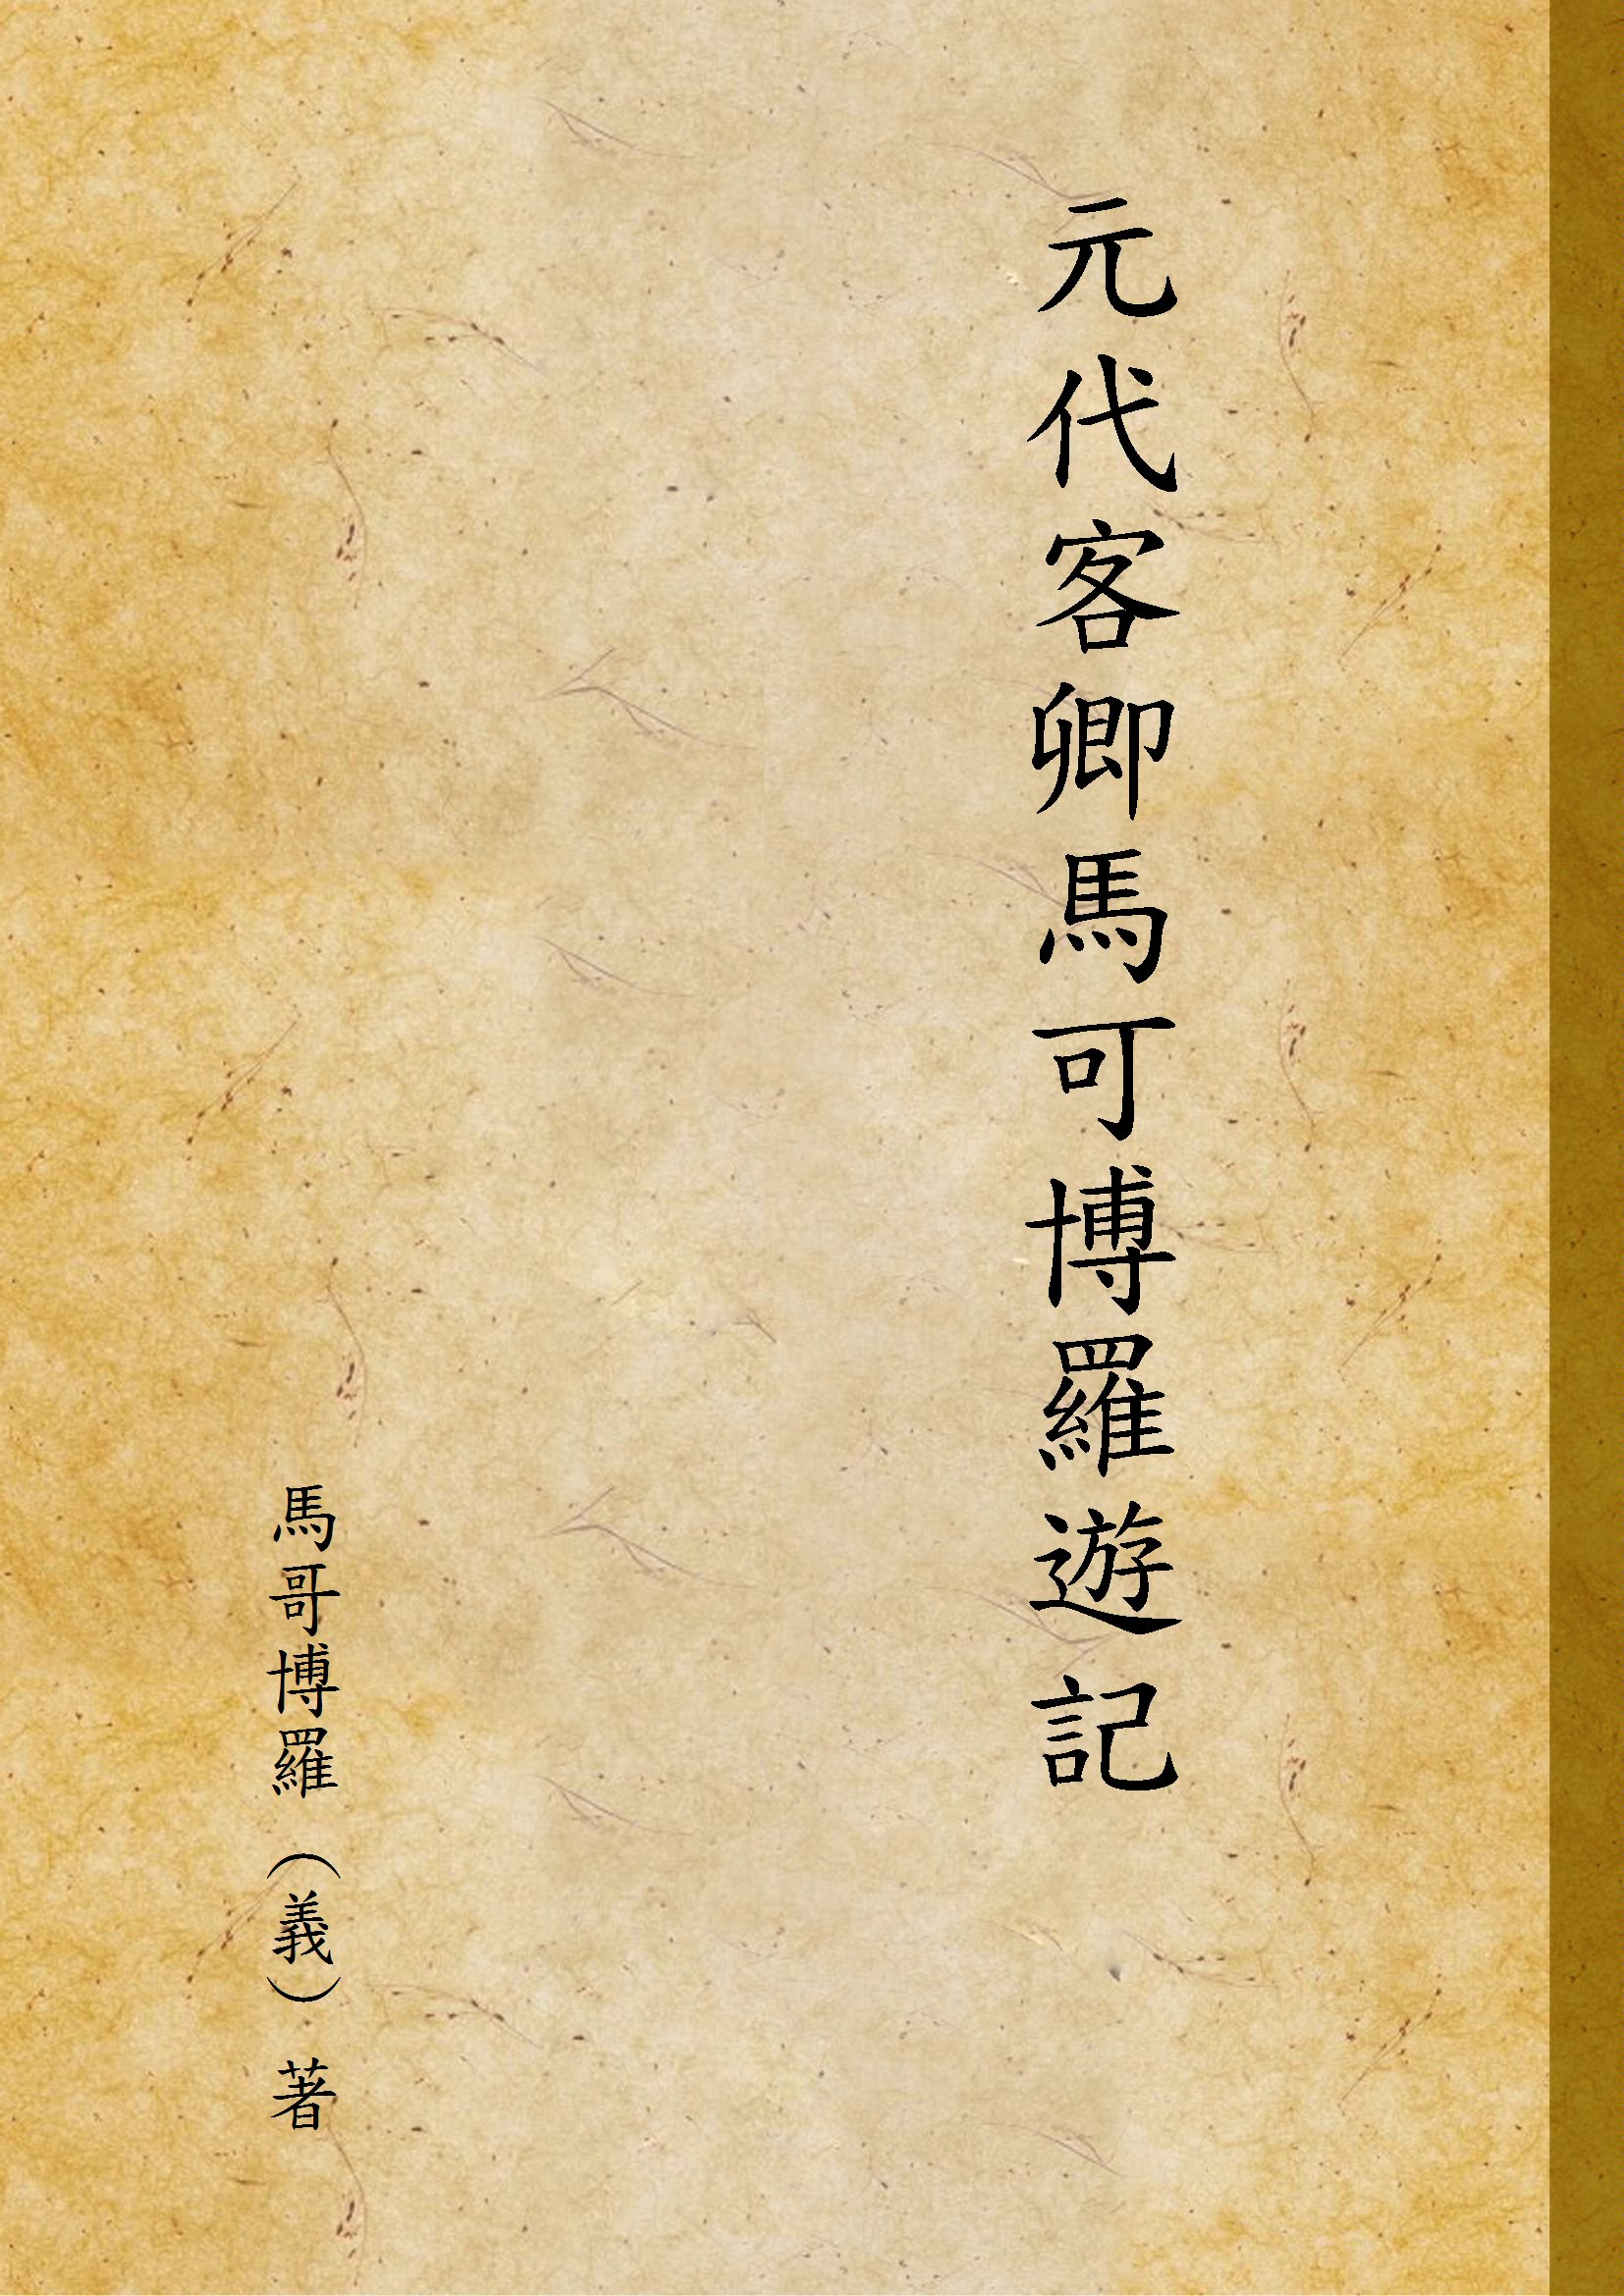 元代客卿馬可博羅遊記
馬哥博羅（義）著